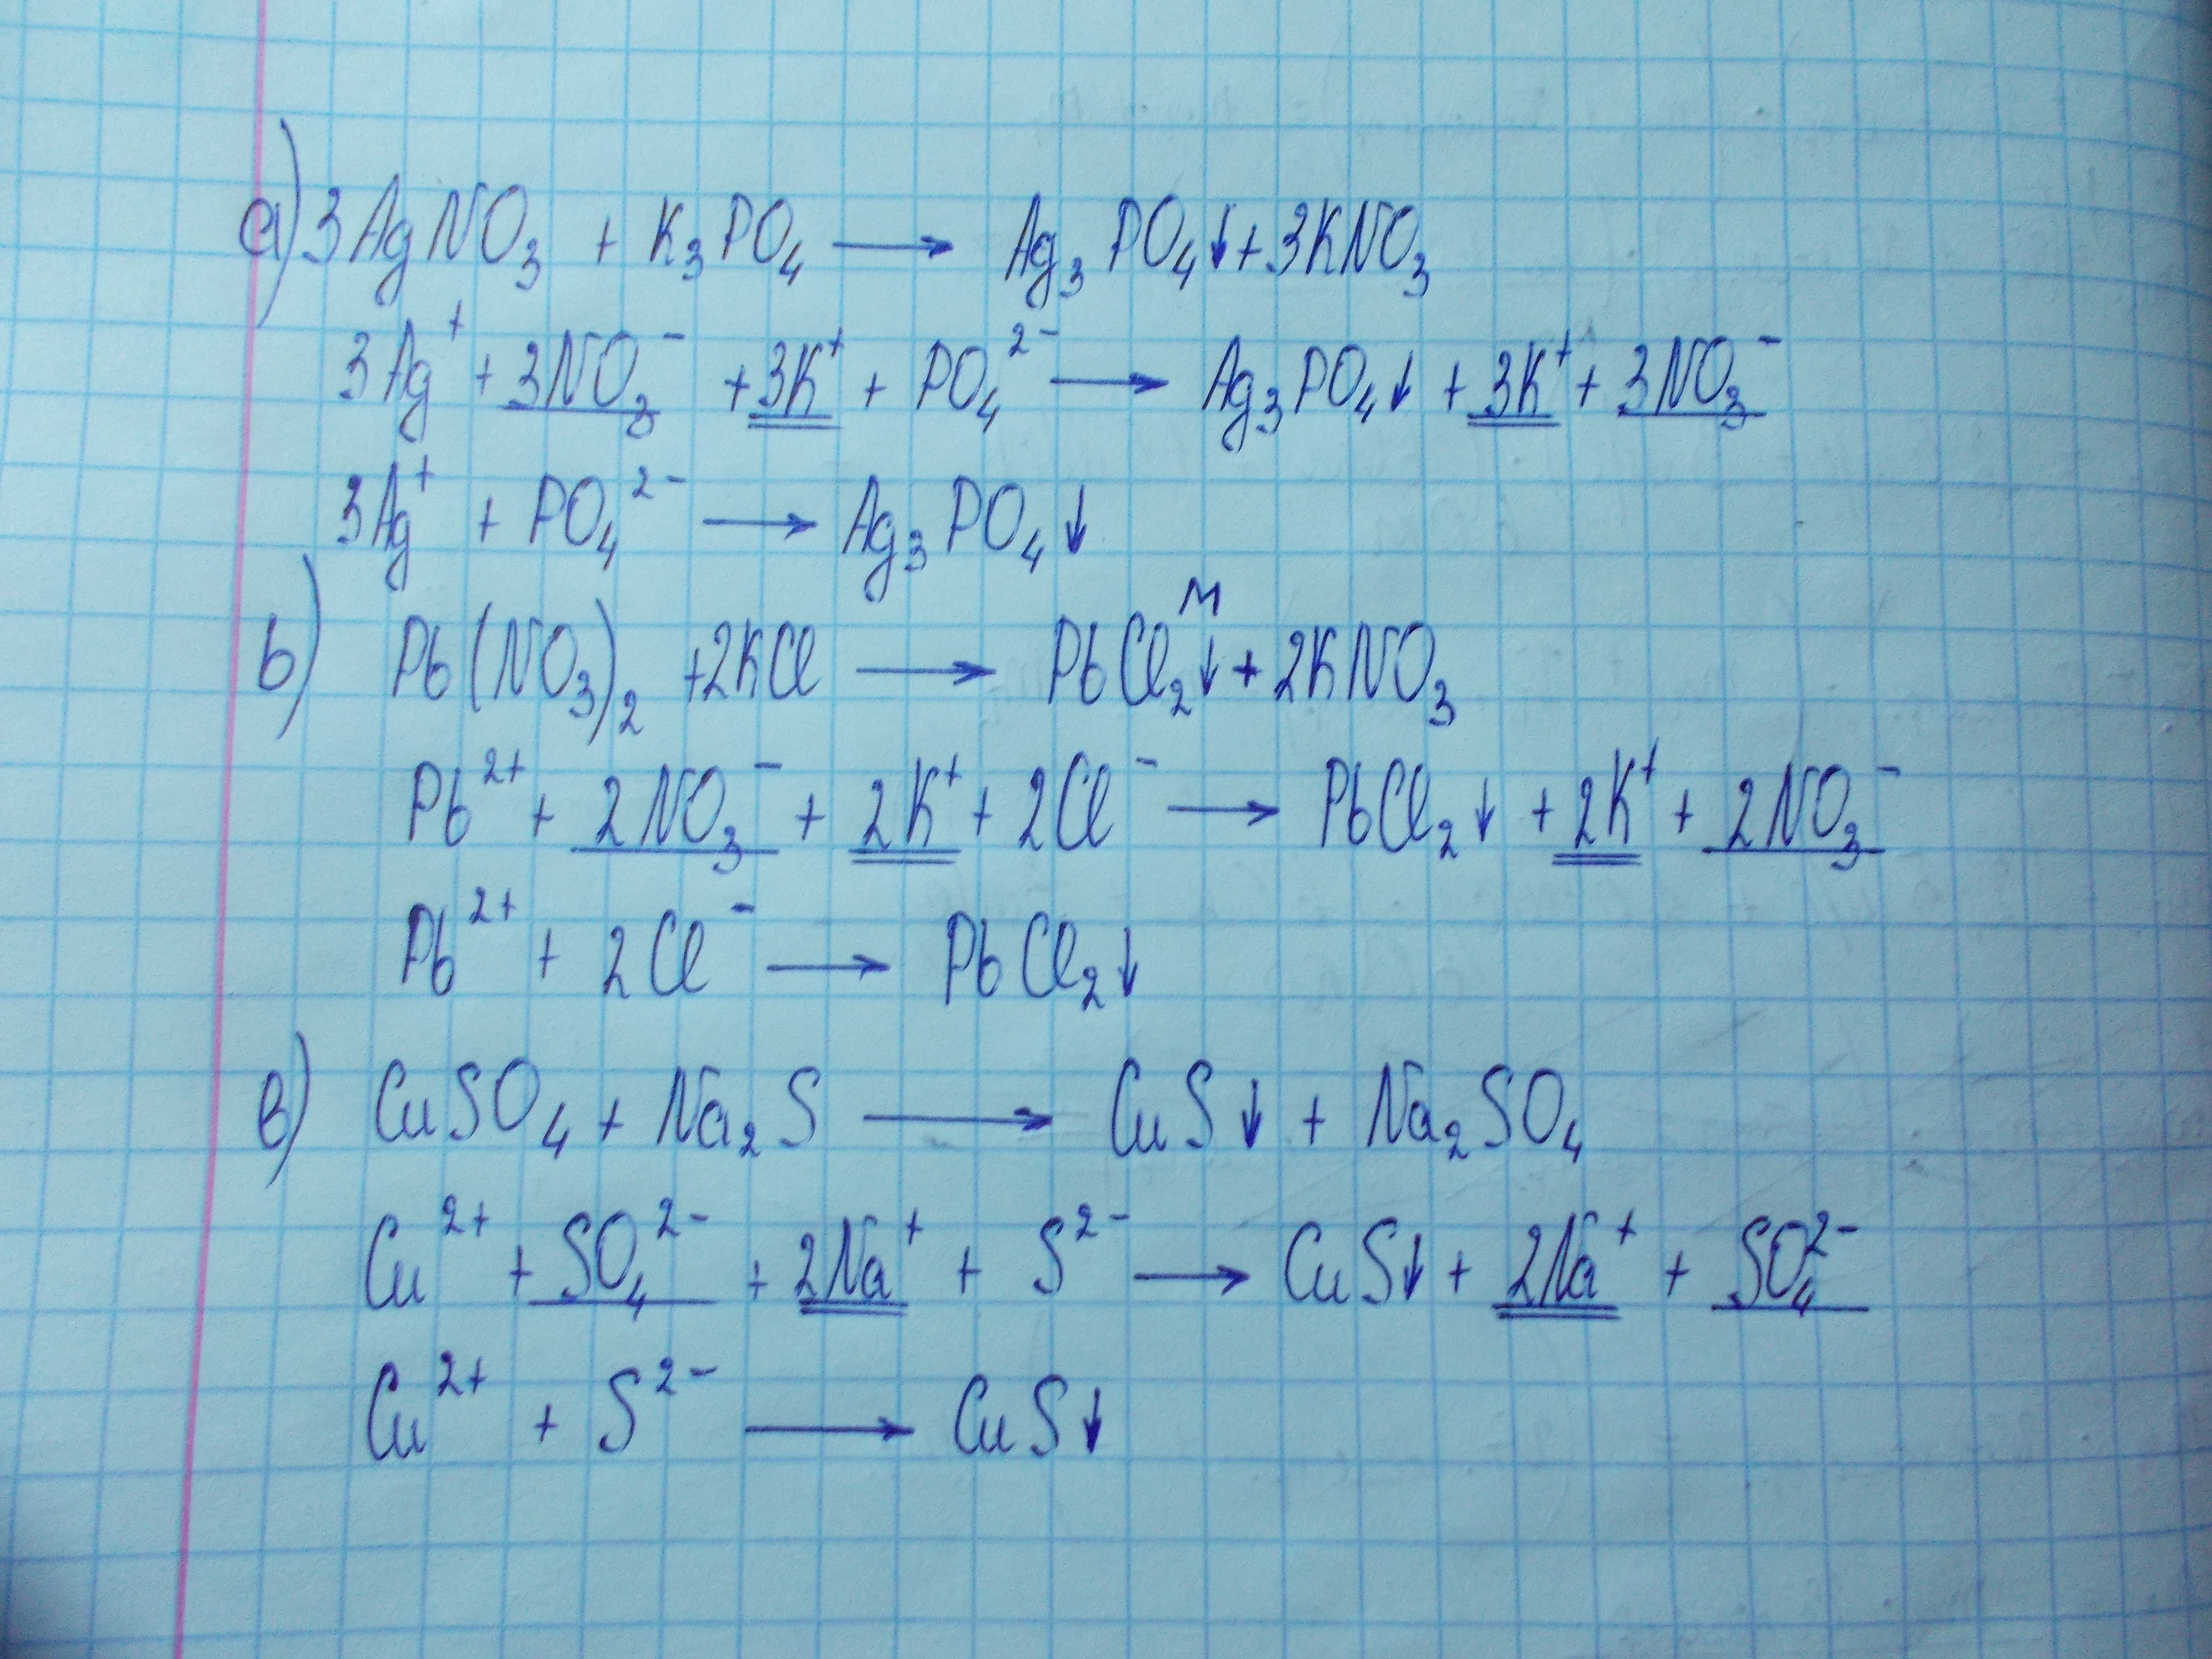 а) 3AgNO₃ + K₃PO₄ → Ag₃PO₄↓ + 3KNO₃
3Ag⁺ + 3NO₃⁻ + 3K⁺ + PO₄²⁻ → Ag₃PO₄↓ + 3K⁺ + 3NO₃⁻
3Ag⁺ + PO₄²⁻ → Ag₃PO₄↓
м
b) Pb(NO₃)₂ + 2KCl → PbCl₂↓ + 2KNO₃
Pb²⁺ + 2NO₃⁻ + 2K⁺ + 2Cl⁻ → PbCl₂↓ + 2K⁺ + 2NO₃⁻
Pb²⁺ + 2Cl⁻ → PbCl₂↓
в) CuSO₄ + Na₂S → CuS↓ + Na₂SO₄
Cu²⁺ + SO₄²⁻ + 2Na⁺ + S²⁻ → CuS↓ + 2Na⁺ + SO₄²⁻
Cu²⁺ + S²⁻ → CuS↓